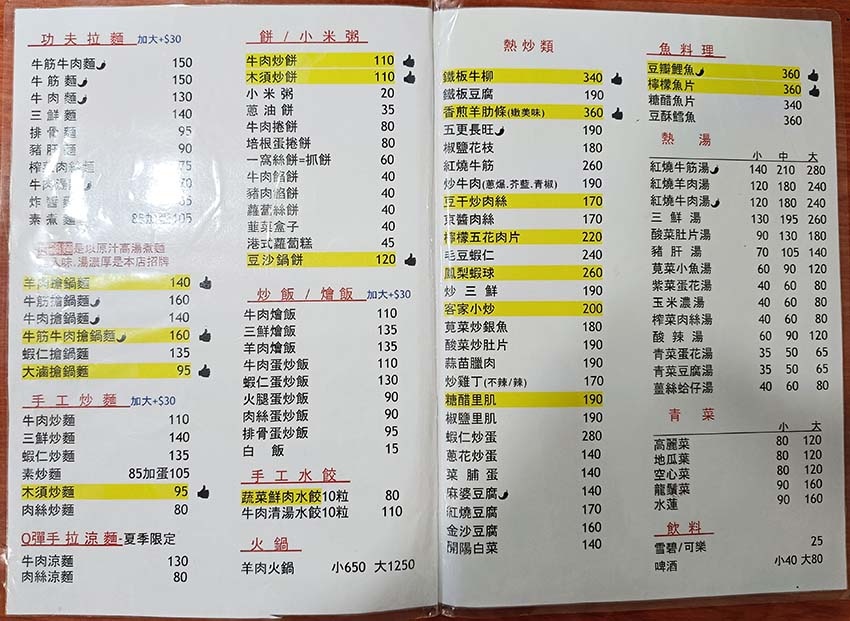 功夫拉麵 加大+$30
牛筋牛肉麵 150
牛筋麵 150
牛肉麵 130
三鮮麵 140
排骨麵 95
豬肝麵 90
榨菜肉絲麵 75
牛肉湯麵 70
炸醬麵 65
素煮麵 85加蛋105
是以原汁高湯煮麵
入味.湯濃厚是本店招牌
羊肉搶鍋麵 140
牛筋搶鍋麵 160
牛肉搶鍋麵 140
牛筋牛肉搶鍋麵 160
蝦仁搶鍋麵 135
大滷搶鍋麵 95
手工炒麵 加大+$30
牛肉炒麵 110
三鮮炒麵 140
蝦仁炒麵 135
素炒麵 85加蛋105
木須炒麵 95
肉絲炒麵 80
Q彈手拉涼麵-夏季限定
牛肉涼麵 130
肉絲涼麵 80
餅/小米粥
牛肉炒餅 110
木須炒餅 110
小米粥 20
蔥油餅 35
牛肉捲餅 80
培根蛋捲餅 80
一窩絲餅=抓餅 60
牛肉餡餅 40
豬肉餡餅 40
蘿蔔絲餅 40
韮菜盒子 40
港式蘿蔔糕 45
豆沙鍋餅 120
炒飯/燴飯 加大+$30
牛肉燴飯 110
三鮮燴飯 135
羊肉燴飯 135
牛肉蛋炒飯 110
蝦仁蛋炒飯 130
火腿蛋炒飯 90
肉絲蛋炒飯 90
排骨蛋炒飯 95
白飯 15
手工水餃
蔬菜鮮肉水餃10粒 80
牛肉清湯水餃10粒 110
火鍋
羊肉火鍋 小650 大1250
熱炒類
鐵板牛柳 340
鐵板豆腐 190
香煎羊肋條(嫩美味) 360
五更長旺 190
椒鹽花枝 180
紅燒牛筋 260
炒牛肉(蔥爆.芥藍.青椒) 190
豆干炒肉絲 170
京醬肉絲 170
檸檬五花肉片 220
毛豆蝦仁 240
鳳梨蝦球 260
炒三鮮 190
客家小炒 200
莧菜炒銀魚 180
酸菜炒肚片 190
蒜苗臘肉 190
炒雞丁(不辣/辣) 170
糖醋里肌 190
椒鹽里肌 190
蝦仁炒蛋 280
蔥花炒蛋 140
菜脯蛋 140
麻婆豆腐 140
紅燒豆腐 170
金沙豆腐 160
開陽白菜 140
魚料理
豆瓣鯉魚 360
檸檬魚片 360
糖醋魚片 340
豆酥鱈魚 360
熱湯
小 中 大
紅燒牛筋湯 140 210 280
紅燒羊肉湯 120 180 240
紅燒牛肉湯 120 180 240
三鮮湯 130 195 260
酸菜肚片湯 90 130 180
豬肝湯 70 105 140
莧菜小魚湯 60 90 120
紫菜蛋花湯 40 60 80
玉米濃湯 40 60 80
榨菜肉絲湯 40 60 80
酸辣湯 60 90 120
青菜蛋花湯 35 50 65
青菜豆腐湯 35 50 65
薑絲蛤仔湯 40 60 80
青菜
小 大
高麗菜 80 120
地瓜葉 80 120
空心菜 80 120
龍鬚菜 90 160
水蓮 90 160
飲料
雪碧/可樂 25
啤酒 小40 大80